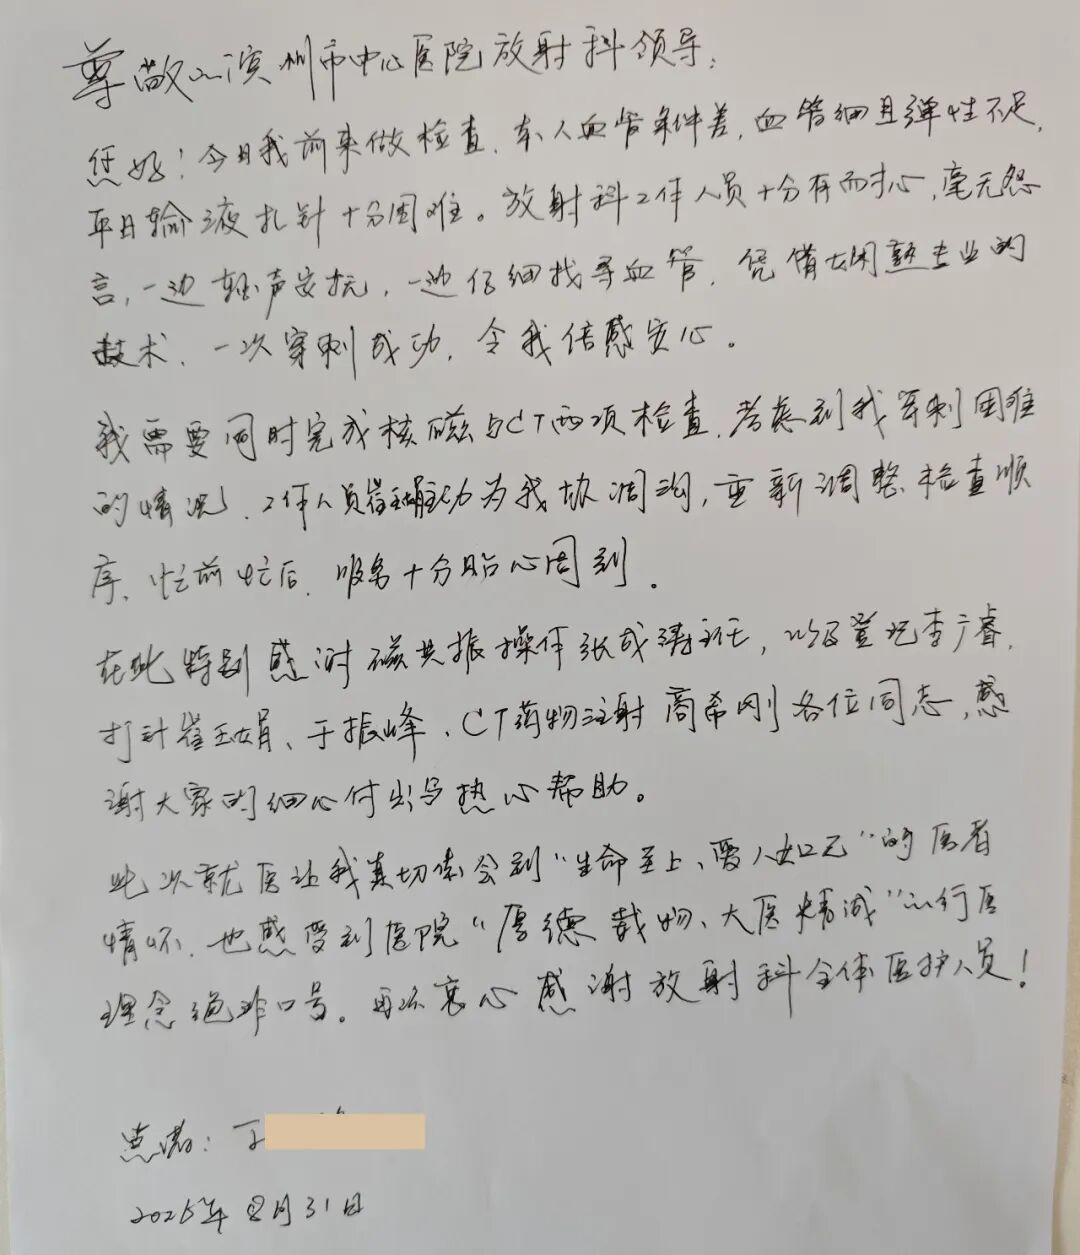 尊敬的滨州市中心医院放射科领导：
您好！今日我前来做检查，本人血管条件差，血管细且弹性不足，
平日输液扎针十分困难。放射科工作人员十分有耐心，毫无怨
言，一边轻声安抚，一边仔细找寻血管，凭借娴熟专业的
技术，一次穿刺成功，令我倍感安心。
我需要同时完成核磁与CT两项检查，考虑到我穿刺困难
的情况，工作人员崔玉娟主动为我协调沟，重新调整检查顺
序，忙前忙后，服务十分贴心周到。
在此特别感谢磁共振操作张成涛主任，以及登记李广睿，
打针崔玉娟、于振峰，CT药物注射商希刚各位同志，感
谢大家的细心付出与热心帮助。
此次就医让我真切体会到“生命至上、爱人如己”的医者
情怀，也感受到医院“厚德载物、大医精诚”的行医
理念绝非口号。再次衷心感谢放射科全体医护人员！
患者：丁
2025年8月31日